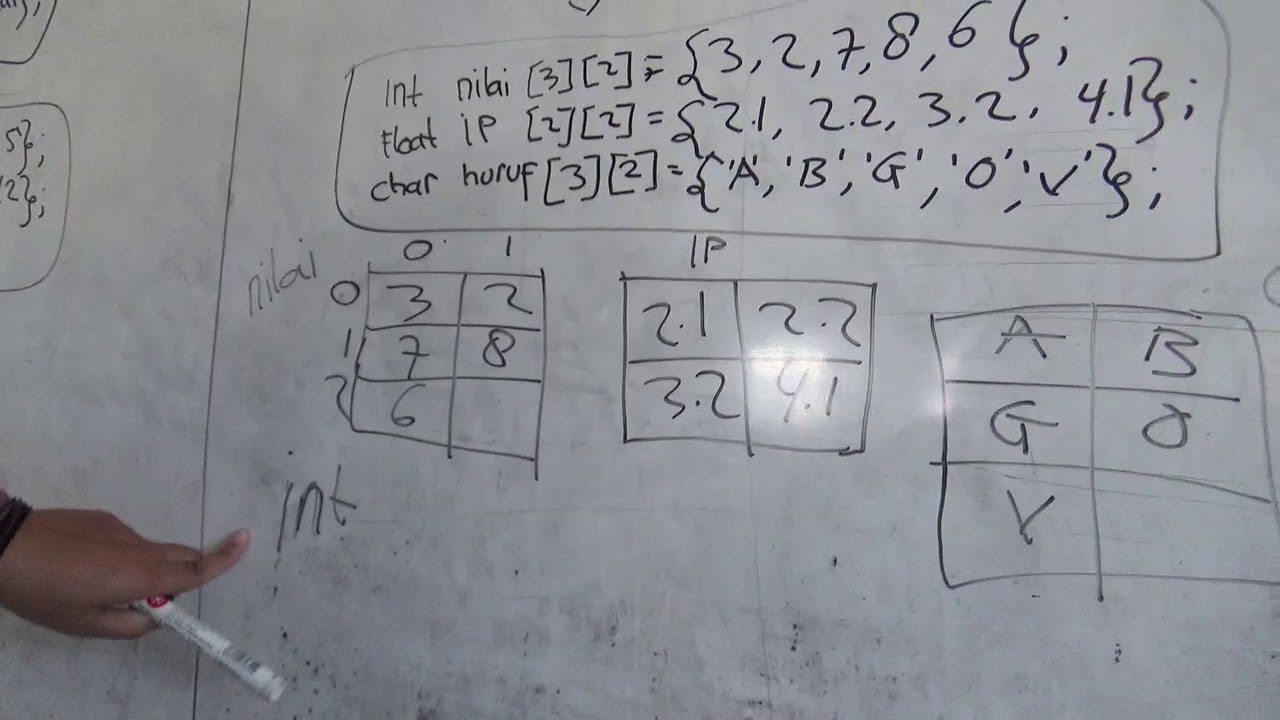 5};
12};
int nilai [3][2] = {3, 2, 7, 8, 6};
float IP [2][2] = {2.1, 2.2, 3.2, 4.1};
char huruf [3][2] = {'A', 'B', 'G', 'O', 'V'};
nilai
0 1
0 3 2
1 7 8
2 6
IP
2.1 2.2
3.2 4.1
A B
G O
V
int